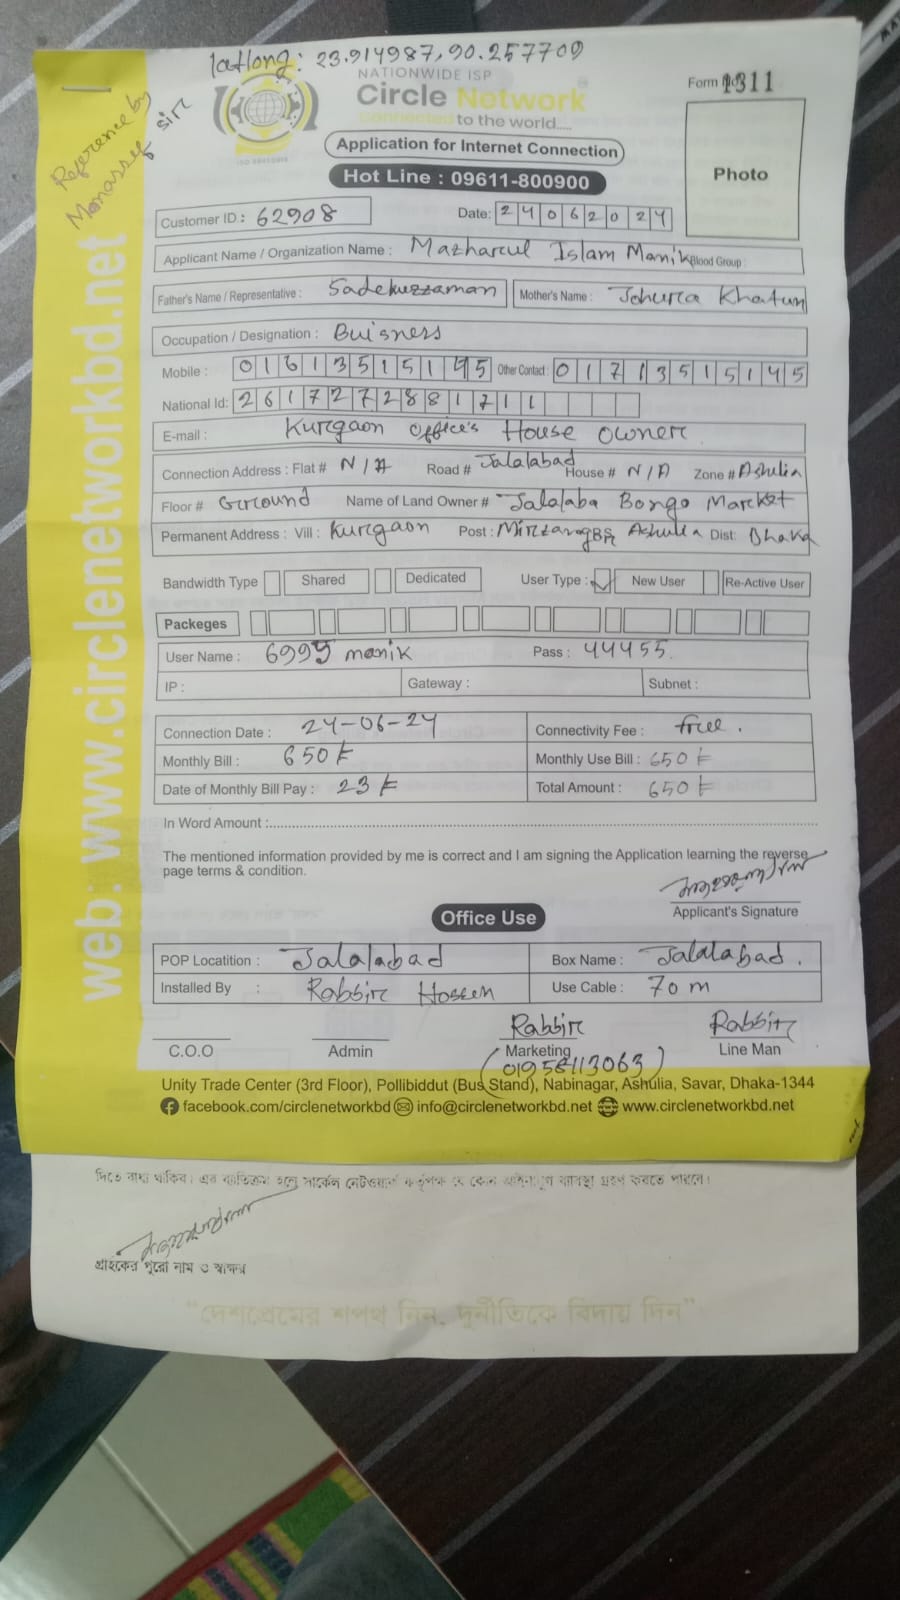 latlong: 23.914987,90.257709
Reference by
Monassef sir
NATIONWIDE ISP
Circle Network
Connected to the world....
Form No 1311
Application for Internet Connection
Hot Line : 09611-800900
Photo
Customer ID.: 62908 Date: 24062024
Applicant Name / Organization Name : Mazharul Islam Manik Blood Group:
Father's Name / Representative : Sadekuzzaman Mother's Name : Johura Khatun
Occupation / Designation : Buisness
Mobile : 01613515145 Other Contact : 01713515145
National Id: 2617272881711
E-mail : Kurgaon office's House owner
Connection Address : Flat # N/A Road # Jalalabad House # N/A Zone # Ashulia
Floor # Ground Name of Land Owner # Jalalaba Bongo Market
Permanent Address : Vill : Kurgaon Post : PS: Ashulia Dist: Dhaka
Bandwidth Type Shared Dedicated User Type : New User Re-Active User
Packeges
User Name : 6999 manik Pass : 44455
IP : Gateway : Subnet :
Connection Date : 24-06-24 Connectivity Fee : free.
Monthly Bill : 650 Monthly Use Bill : 650
Date of Monthly Bill Pay : 23 Total Amount : 650
In Word Amount :
The mentioned information provided by me is correct and I am signing the Application learning the reverse
page terms & condition.
Applicant's Signature
Office Use
POP Locatition : Jalalabad Box Name : Jalalabad.
Installed By : Rabbir Hossen Use Cable : 70 m
Rabbir Rabbir
C.O.O Admin Marketing Line Man
(01958113063)
Unity Trade Center (3rd Floor), Pollibiddut (Bus Stand), Nabinagar, Ashulia, Savar, Dhaka-1344
facebook.com/circlenetworkbd info@circlenetworkbd.net www.circlenetworkbd.net
web: www.circlenetworkbd.net
দিতে বাধ্য থাকিব। এর ব্যতিক্রম হলে সার্কেল নেটওয়ার্ক কর্তৃপক্ষ যে কোন আইনানুগ ব্যবস্থা গ্রহণ করতে পারবে।
গ্রাহকের পুরো নাম ও স্বাক্ষর
“দেশপ্রেমের শপথ নিন, দুর্নীতিকে বিদায় দিন”